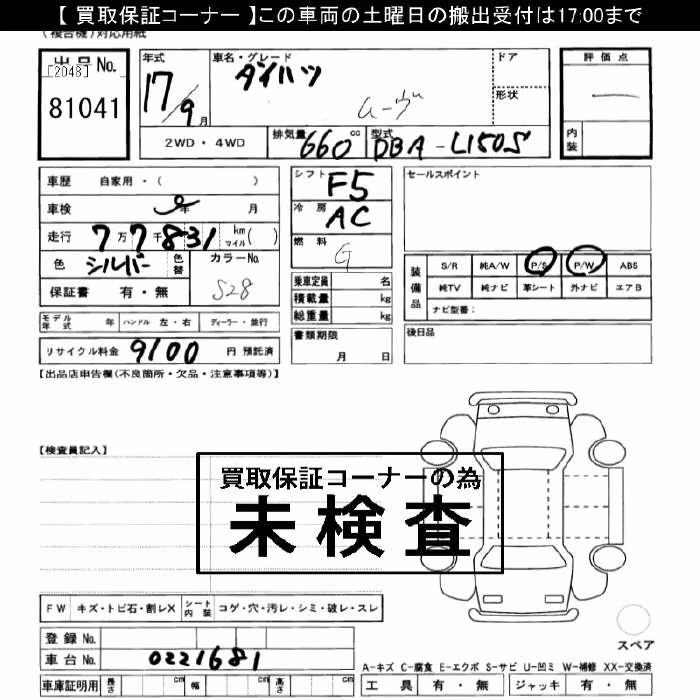 【 買取保証コーナー 】この車両の土曜日の搬出受付は17:00まで
(複合機)対応用紙
出品No.
[2048]
81041
年式
17/9月
車名・グレード
ダイハツ
ムーヴ
ドア
形状
評価点
一
内装
2WD・4WD
排気量 660 cc
型式 DBA-L150S
車歴 自家用・( )
車検 年 月
走行 7万7千831 km マイル( )
色 シルバー 色替
カラーNo. S28
保証書 有・無
シフト F5
冷房 AC
燃料 G
乗車定員 名
積載量 kg
総重量 kg
セールスポイント
装備品
S/R 純A/W P/S P/W ABS
純TV 純ナビ 革シート 外ナビ エアB
ナビ型番:
モデル年式 年 ハンドル 左・右 ディーラー・並行
書類期限
月 日
後日品
リサイクル料金 9100 円 預託済
【出品店申告欄(不良箇所・欠品・注意事項等)】
【検査員記入】
買取保証コーナーの為
未検査
FW キズ・トビ石・割レX シート内装 コゲ・穴・汚レ・シミ・破レ・スレ
登録 No.
車台 No. 0221681
車庫証明用 長さ cm 幅 cm 高さ cm
スペア
A-キズ C-腐食 E-エクボ S-サビ U-凹ミ W-補修 XX-交換済
工具 有・無 ジャッキ 有・無